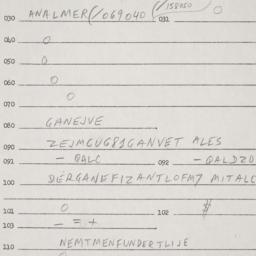 030 ANALMER(/069040 (/158050 031 0
040 0
050 0
060 0
070 0
080 GANEJVE
090 ZEJMGUG81GANVET ALES
091 - QALC 092 - QALDZO
100 DERGANEFIZANTLOFM7 MITALC
101 0 102 $
103 - = +
110 NEMTMENFUNDERTLIJE